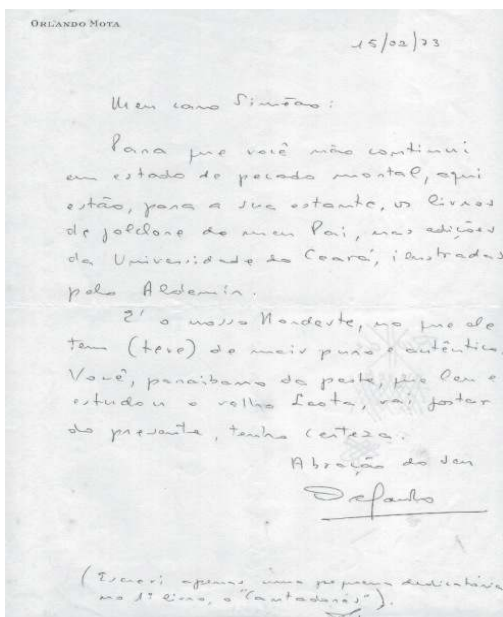 ORLANDO MOTA
15/02/73
Meu caro Simeão:
Para que você não continui
em estado de pecado mortal, aqui
estão, para a sua estante, os livros
de folclore do meu Pai, nas edições
da Universidade do Ceará, ilustradas
pelo Aldemir.
É o nosso Nordeste, no que ele
tem (teve) de mais puro e autêntico.
Você, paraibano da peste, que leu e
estudou o velho Leota, vai gostar
do presente, tenho certeza.
Abração do seu
Orlando
(Escrevi apenas uma pequena dedicatória
no 1º livro, o "Cantadores").